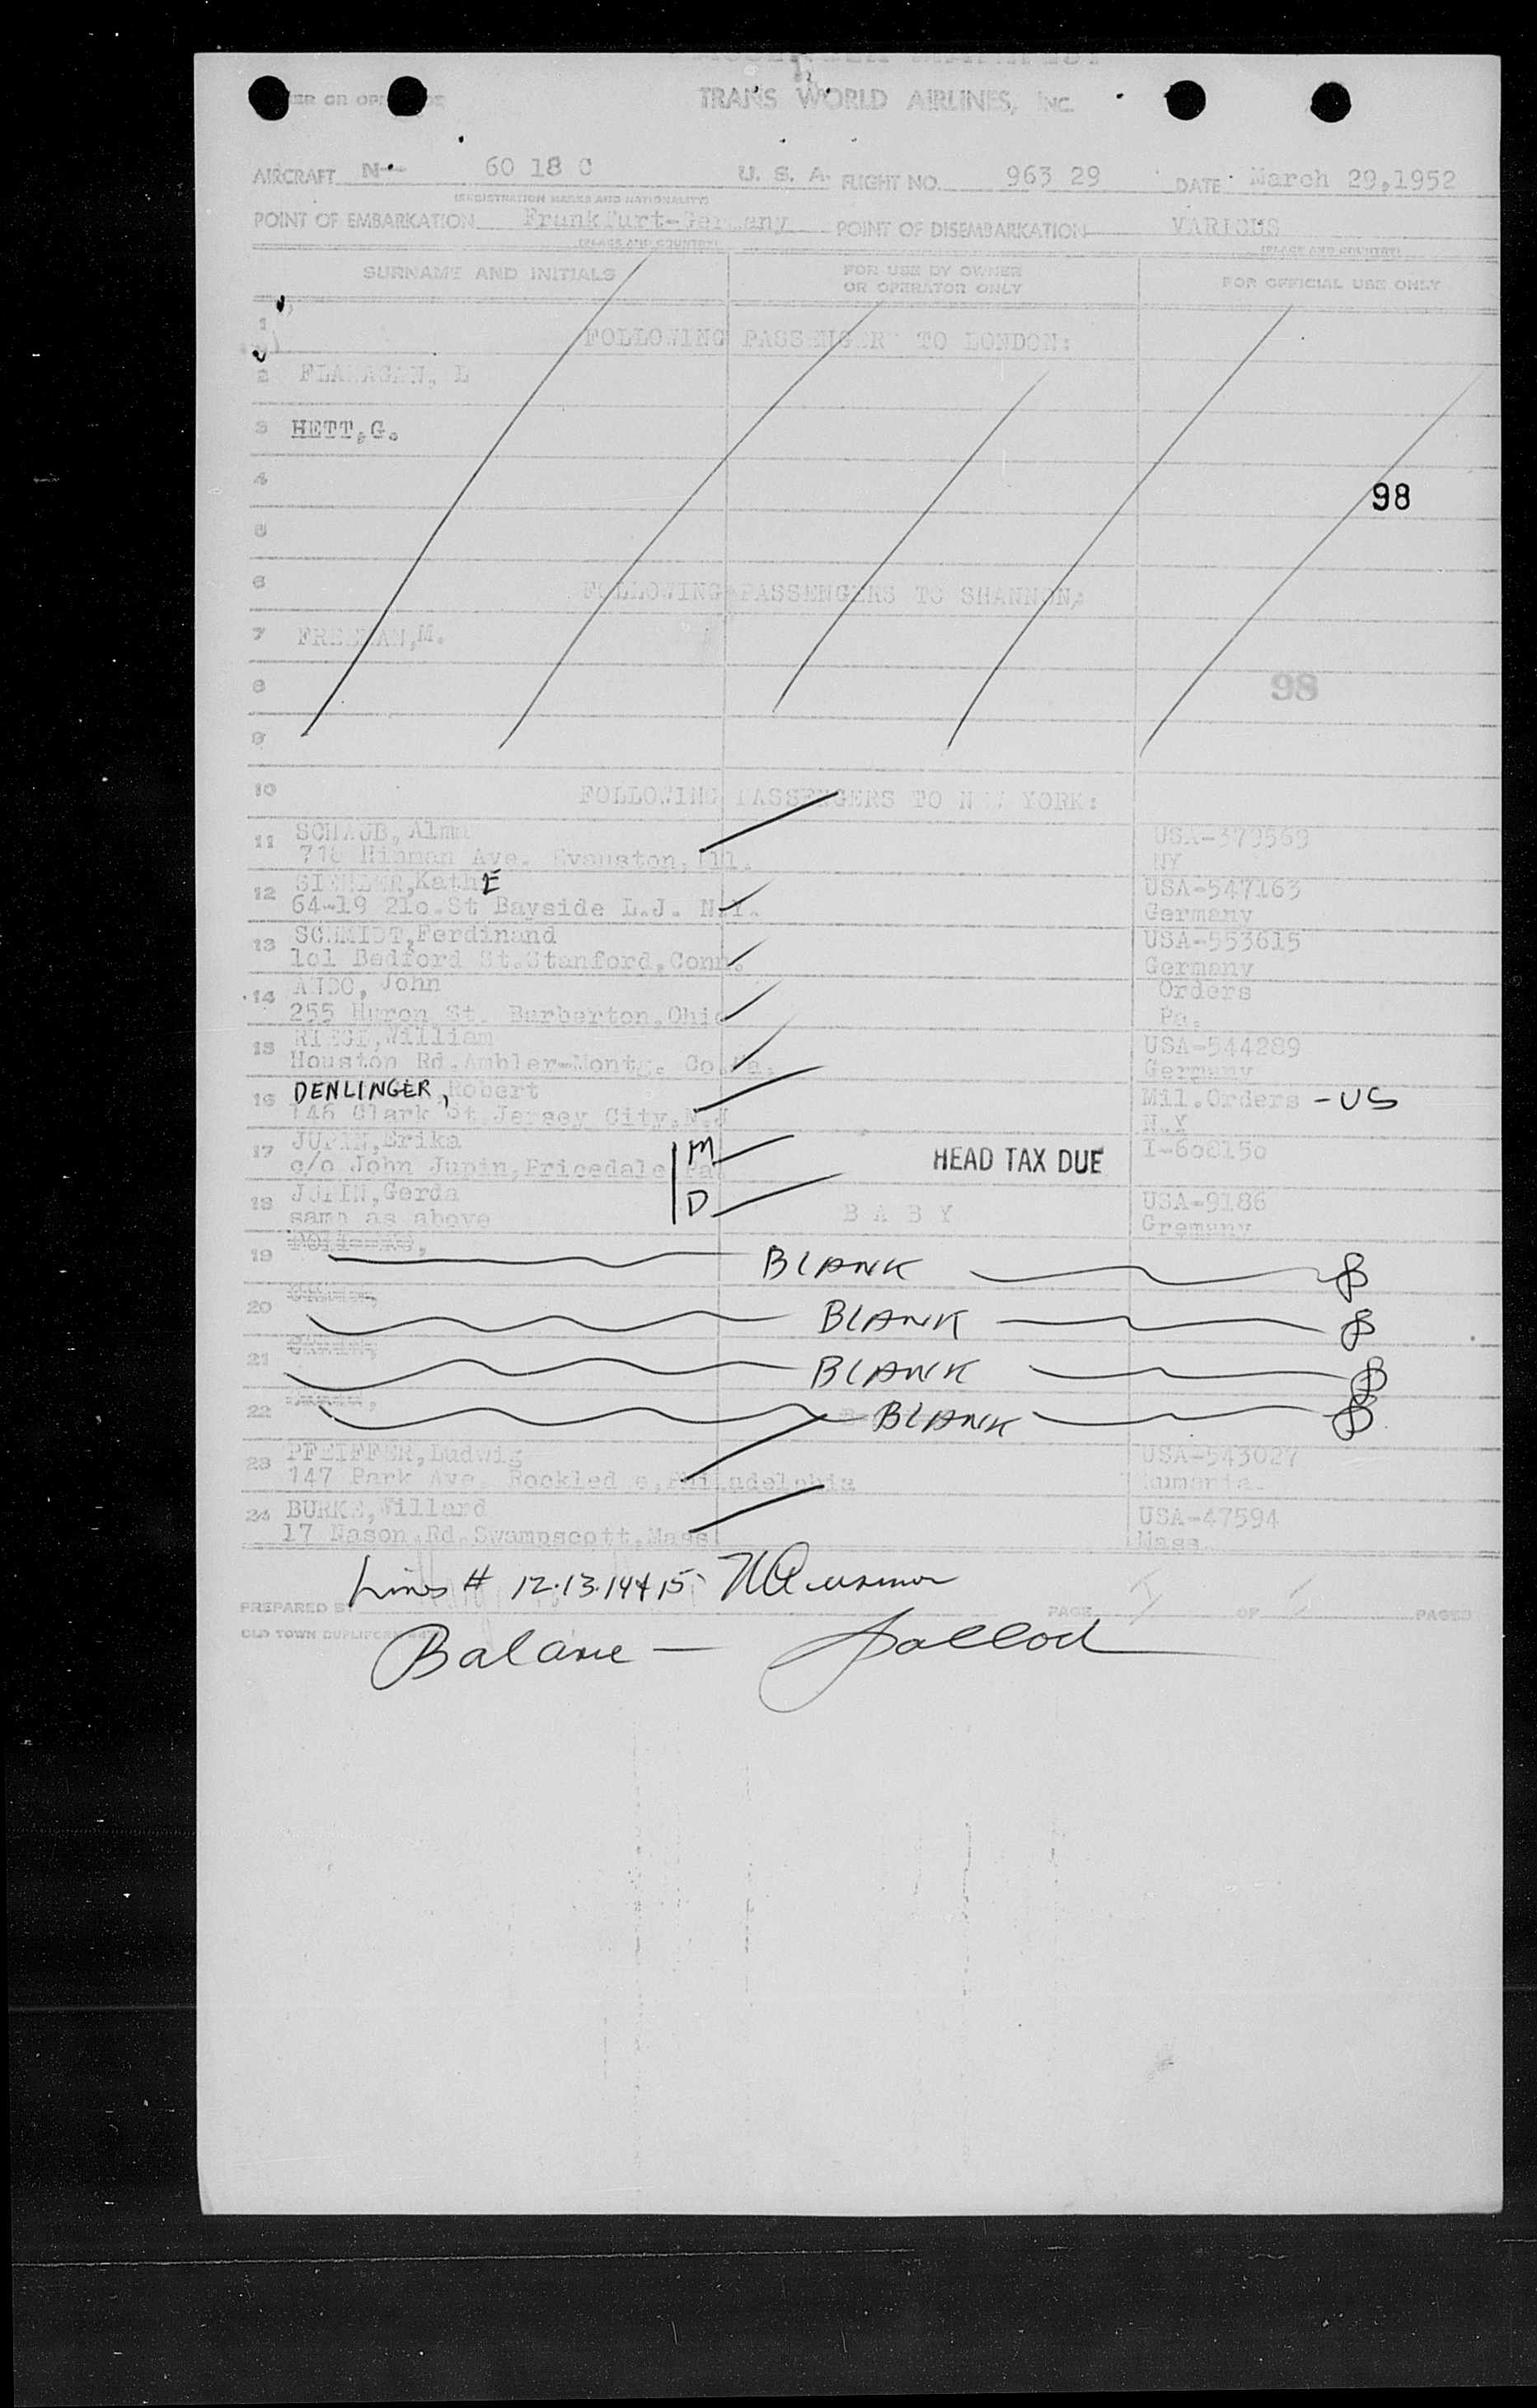 TRANS WORLD AIRLINES, INC.
AIRCRAFT N-- 60 18 C U. S. A. FLIGHT NO. 963 29 DATE March 29,1952
(REGISTRATION MARKS AND NATIONALITY)
POINT OF EMBARKATION Frankfurt-Germany POINT OF DISEMBARKATION VARIOUS
(PLACE AND COUNTRY) (PLACE AND COUNTRY)
SURNAME AND INITIALS FOR USE BY OWNER OR OPERATOR ONLY FOR OFFICIAL USE ONLY
1 FOLLOWING PASSENGER TO LONDON:
2 FLANAGAN, L
3 HETT,G.
4
98
5
6 FOLLOWING PASSENGERS TO SHANNON:
7 FREEMAN,M.
8 98
9
10 FOLLOWING PASSENGERS TO NEW YORK:
11 SCHAUB, Alma USA-379569
Hinman Ave. Evauston, Ill. NY
12 KathE USA-547163
64-19 21o.St Bayside L.J. N.Y. Germany
13 SCHMIDT,Ferdinand USA-553615
1o1 Bedford St.Stanford,Conn. Germany
14 John Orders
255 Huron St. Barberton,Ohio Pa.
15 William USA-544289
Houston Rd.Ambler-Montg. Co.Pa. Germany
16 DENLINGER, Robert Mil.Orders - US
146 Clark St.Jersey City,N.J N.Y
17 JUPIN,Erika M HEAD TAX DUE I-6o8150
c/o John Jupin,Pricedale Pa.
18 JUPIN,Gerda D B A B Y USA-9186
same as above Gremany
19 BLANK
20 BLANK
21 BLANK
22 BLANK
23 PFEIFFER,Ludwig USA-543027
147 Park Ave. Rockledge,Philadelphia Rumania.
24 BURKE,Willard USA-47594
17 Nason Rd.Swampscott,Mass. Mass.
Lines # 12.13.14 + 15
PREPARED BY PAGE OF PAGES
OLD TOWN DUPLIFORM
Balance —